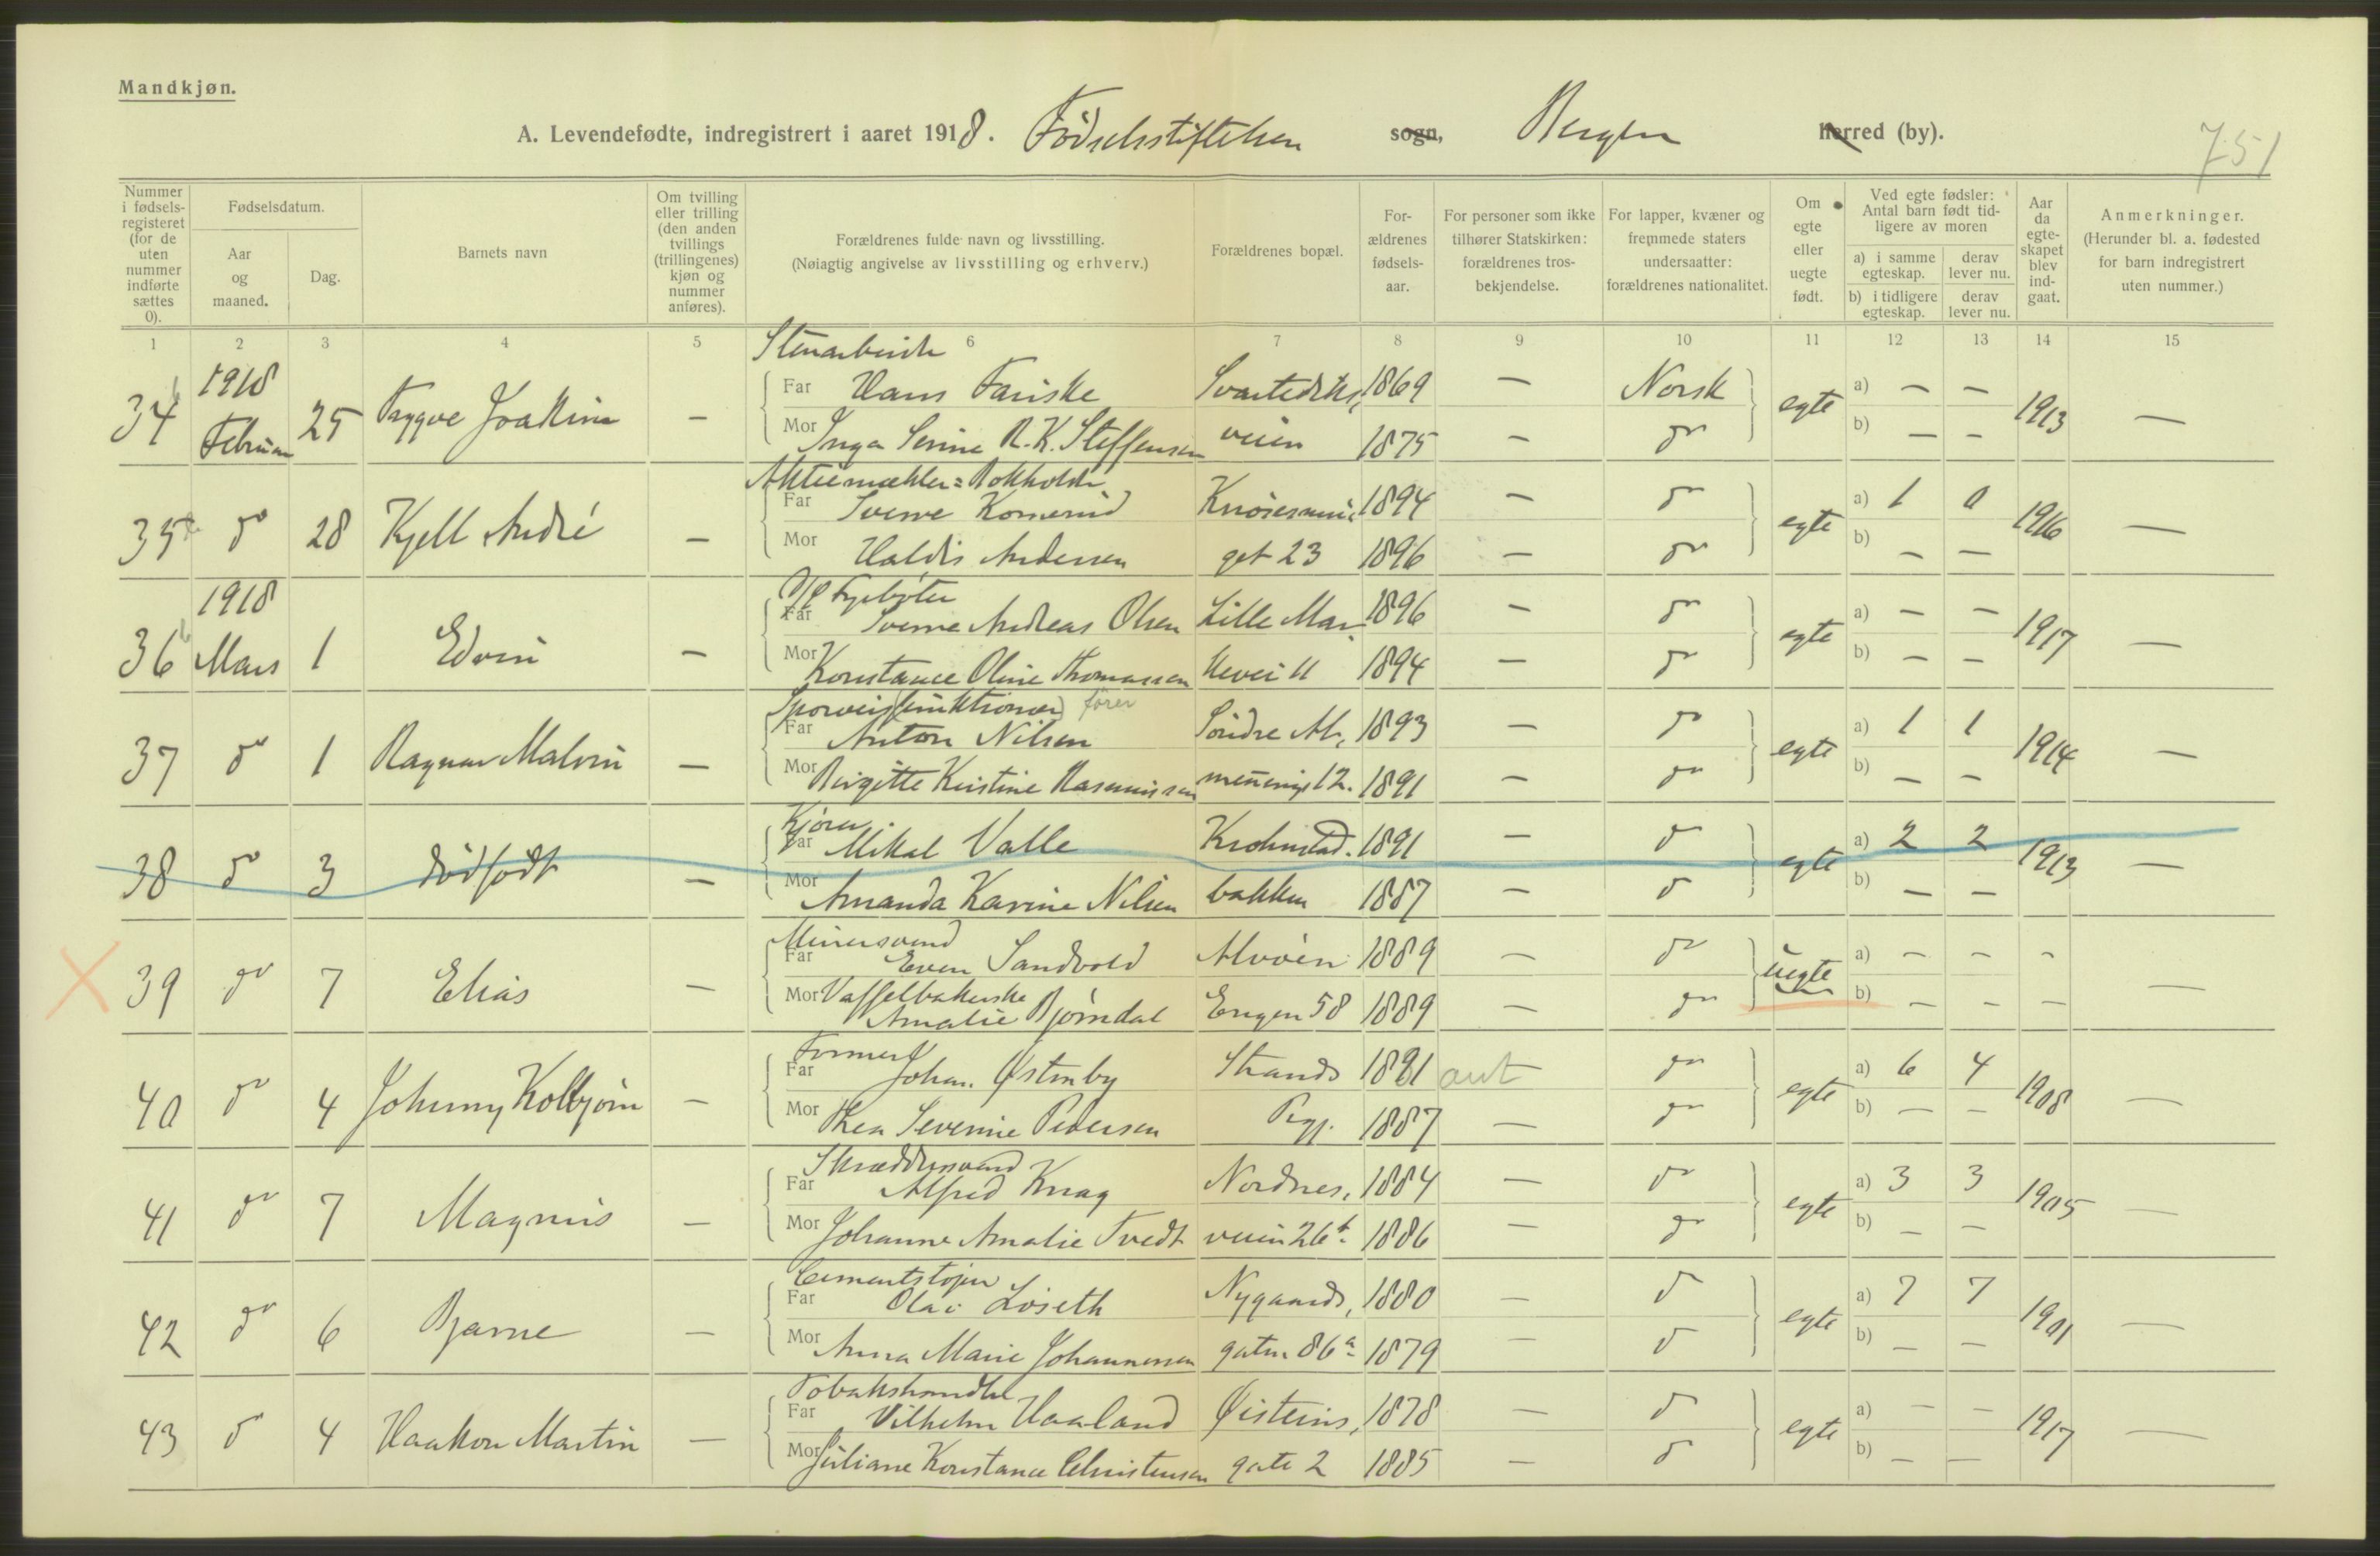 Mandkjøn.
A. Levendefødte, indregistrert i aaret 1918. Fødselsstiftelsen sogn, Bergen herred (by).
751
Nummer i fødsels-registeret (for de uten nummer indførte sættes 0).
Fødselsdatum.
Aar og maaned.
Dag.
Barnets navn
Om tvilling eller trilling (den anden tvillings (trillingenes) kjøn og nummer anføres).
Forældrenes fulde navn og livsstilling.
(Nøiagtig angivelse av livsstilling og erhverv.)
Forældrenes bopæl.
For-ældrenes fødsels-aar.
For personer som ikke tilhører Statskirken: forældrenes tros-bekjendelse.
For lapper, kvæner og fremmede staters undersaatter: forældrenes nationalitet.
Om egte eller uegte født.
Ved egte fødsler: Antal barn født tid-ligere av moren
a) i samme egteskap.
derav lever nu.
b) i tidligere egteskap.
derav lever nu.
Aar da egte-skapet blev ind-gaat.
Anmerkninger.
(Herunder bl. a. fødested for barn indregistrert uten nummer.)
1 2 3 4 5 6 7 8 9 10 11 12 13 14 15
Stenarbeider
34 1918 Februar 25 Tryggve Joakim — Far Hans Fariske Svartediks, 1869 — Norsk egte a) — — 1913 —
Mor Inga Serine R. K. Steffensen veien 1875 — do b) — —
Aktiemækler = Bokholder
35 do 28 Kjell André — Far Sverre Komerud Knøsesmu, 1894 — do egte a) 1 0 1916 —
Mor Haldis Andersen get 23 1896 — do b) — —
1918
36 Mars 1 Edvin — Far Sverre Andreas Olsen Lille Mar, 1896 — do egte a) — — 1917 —
Mor Konstance Oline Thomassen kevei 11 1894 — do b) — —
Sporveis(funktionær) fører
37 do 1 Ragnar Malvin — Far Anton Nilsen Søndre Al, 1893 — do egte a) 1 1 1914 —
Mor Birgitte Kristine Rasmussen menning 12. 1891 — do b) — —
Kjører
38 do 3 dødfødt — Far Mikal Valle Krohnstad. 1891 — do egte a) 2 2 1913 —
Mor Amanda Karine Nilsen bakken 1887 — do b) — —
Minersvend
X 39 do 7 Elias — Far Even Sandvold Alvøen 1889 — do uegte a) — — — —
Mor Vaffelbakerske Amalie Bjørndal Engen 58 1889 — do b) — — —
Former
40 do 4 Johnny Kolbjørn — Far Johan. Østenby Strands 1881 ant do egte a) 6 4 1908 —
Mor Thea Severine Pedersen 1887 — do b) — —
Skræddersvend
41 do 7 Magnus — Far Alfred Knag Nordnes, 1884 — do egte a) 3 3 1905 —
Mor Johanne Amalie Tvedt veien 26b 1886 — do b) — —
Cementstøper
42 do 6 Bjarne — Far Olai Løseth Nygaards, 1880 — do egte a) 7 7 1901 —
Mor Anna Marie Johannessen gaten 86a 1879 — do b) — —
Tobakshandler
43 do 4 Haakon Martin — Far Vilhelm Haaland Øisteins, 1878 — do egte a) — — 1917 —
Mor Juliane Konstance Christensen gate 2 1885 — do b) — —